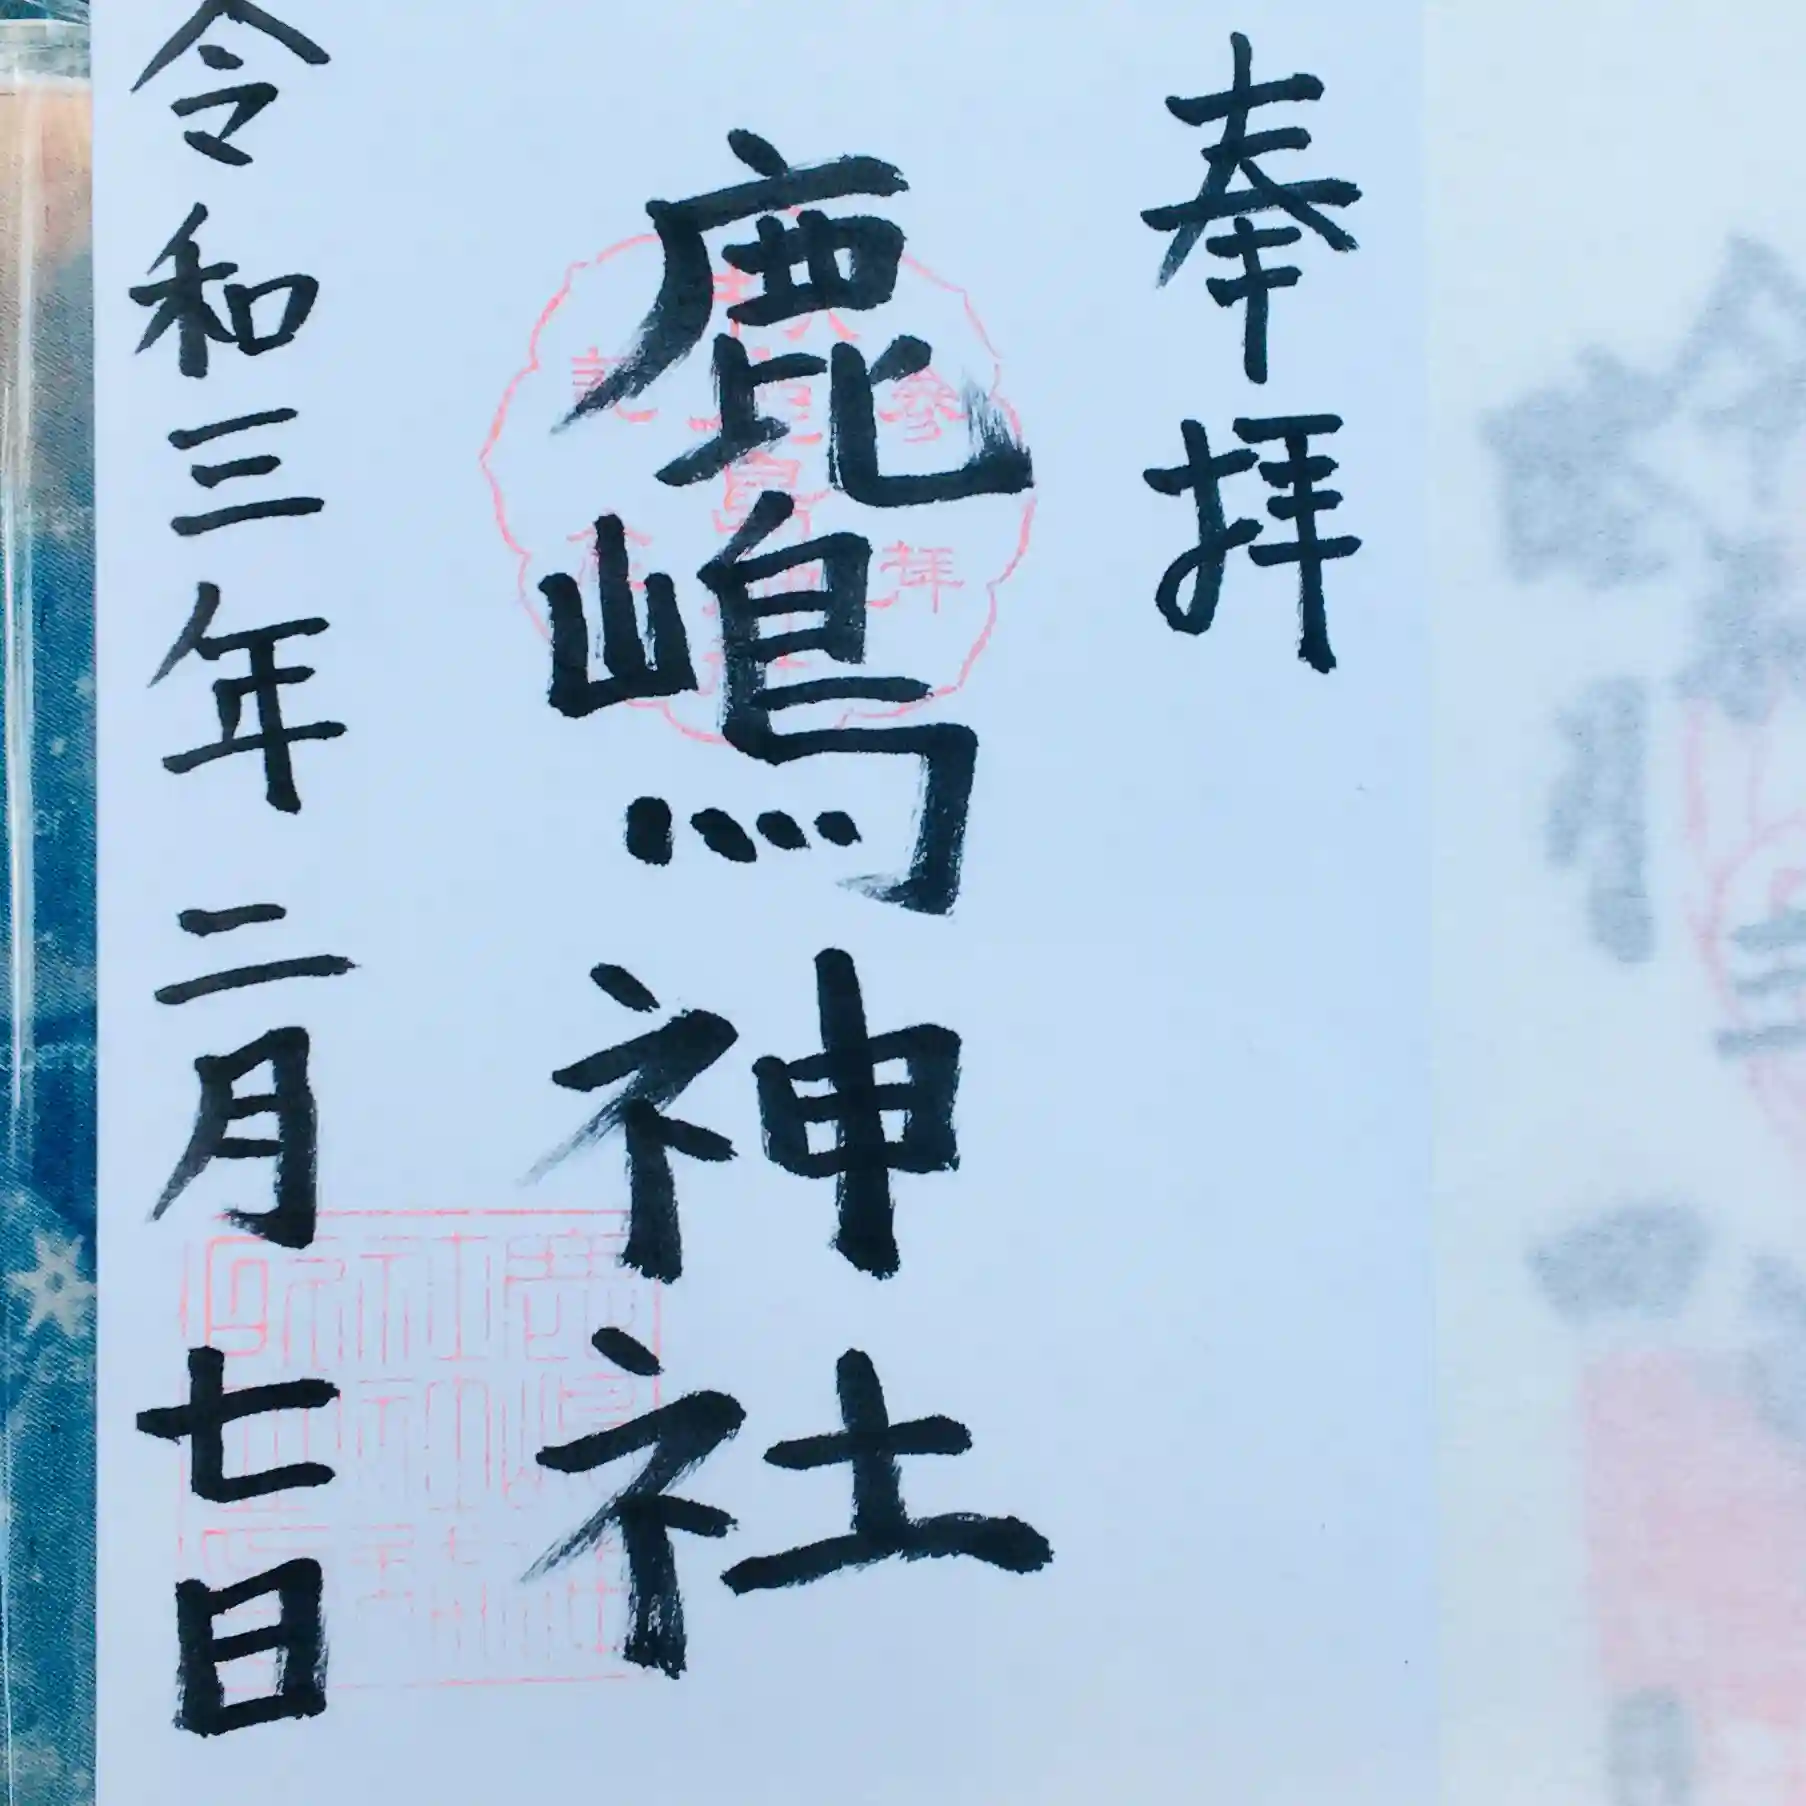 奉拝
鹿嶋神社
令和三年二月七日